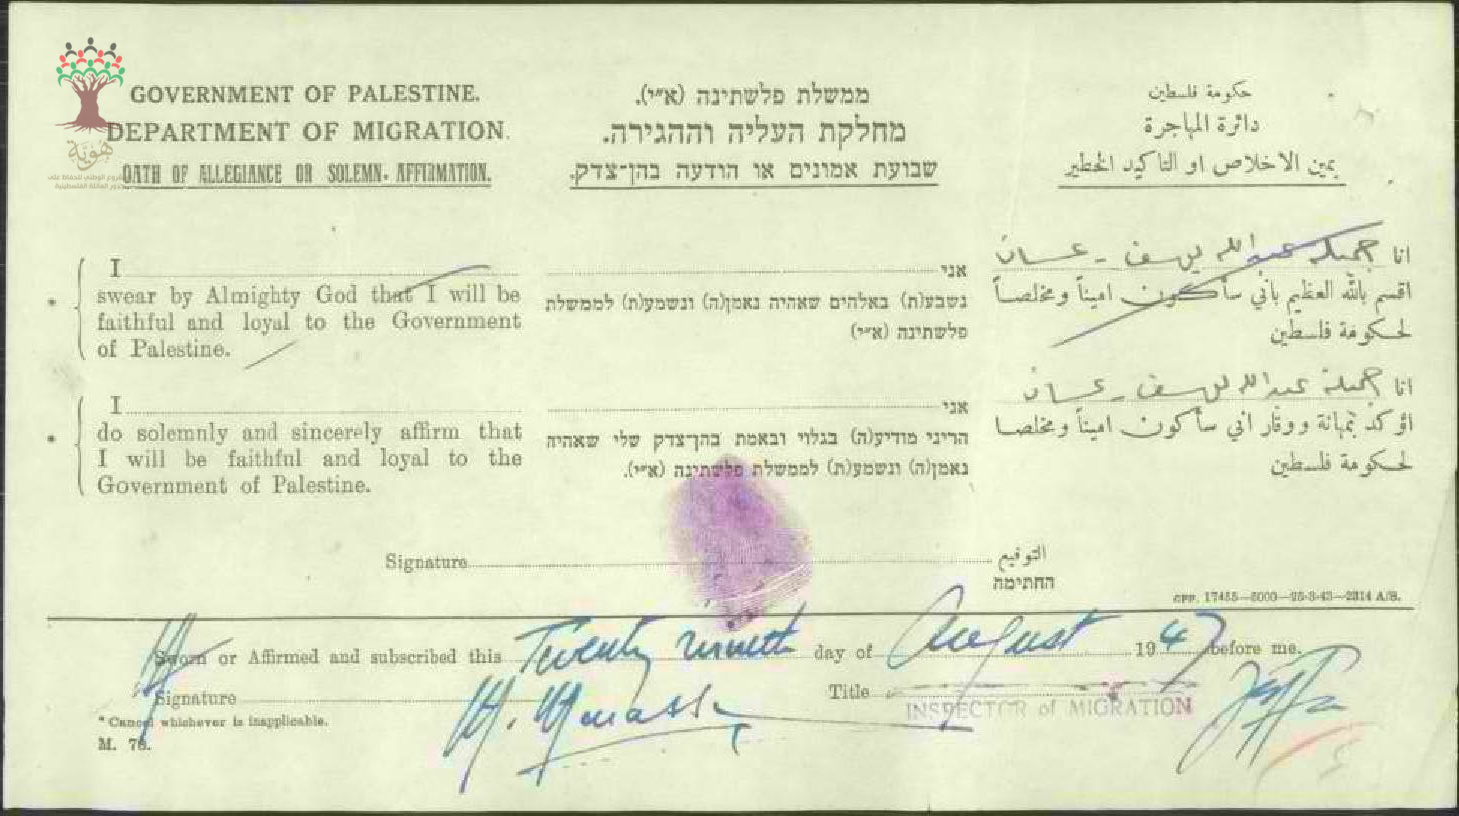 GOVERNMENT OF PALESTINE.
DEPARTMENT OF MIGRATION.
OATH OF ALLEGIANCE OR SOLEMN AFFIRMATION.
ממשלת פלשתינה (א״י).
מחלקת העליה וההגירה.
שבועת אמונים או הודעה בהן־צדק.
حكومة فلسطين
دائرة المهاجرة
يمين الاخلاص او التأكيد الخطير
هوية
* I
swear by Almighty God that I will be
faithful and loyal to the Government
of Palestine.
אני
נשבע(ת) באלהים שאהיה נאמן(ה) ונשמע(ת) לממשלת
פלשתינה (א״י)
انا جميله عبد الله يوسف - غسان
اقسم بالله العظيم بأني سأكون اميناً ومخلصاً
لحكومة فلسطين
* I
do solemnly and sincerely affirm that
I will be faithful and loyal to the
Government of Palestine.
אני
הריני מודיע(ה) בגלוי ובאמת בהן־צדק שלי שאהיה
נאמן(ה) ונשמע(ת) לממשלת פלשתינה (א״י).
انا جميلة عبد الله يوسف - غسان
اؤكد بمهانة ووقار اني سأكون اميناً ومخلصا
لحكومة فلسطين
Signature
التوقيع
החתימה
GPP. 17455—5000—25-3-43—2314 A/B.
Sworn or Affirmed and subscribed this Twenty nineth day of August 1947 before me.
Signature
Title INSPECTOR of MIGRATION
Jaffa
* Cancel whichever is inapplicable.
M. 76.